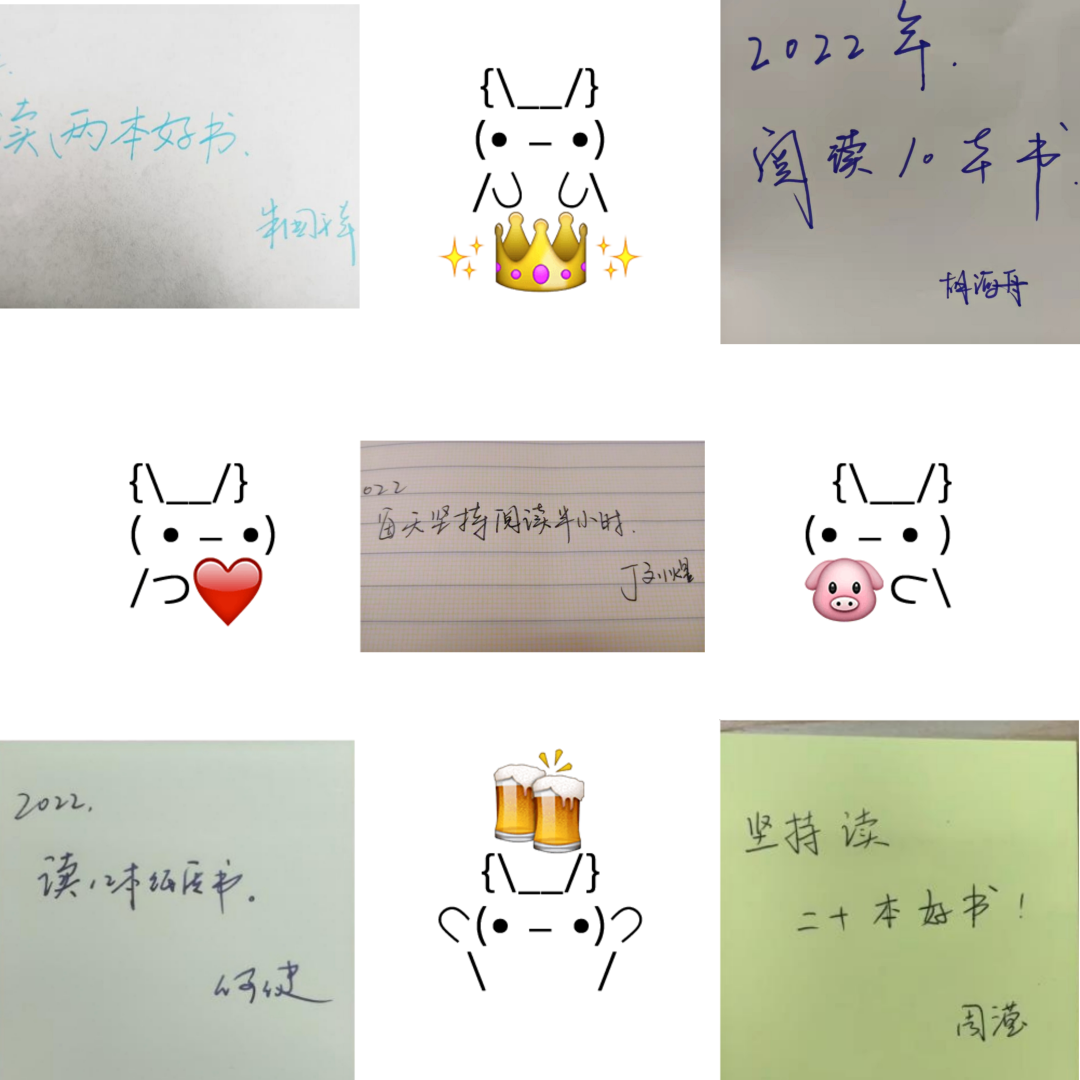 读两本好书.
2022年.
阅读10本书.
胡海丹
{\__/}
(● _ ●)
022
每天坚持阅读半小时.
{\__/}
( ● _ ●)
{\__/}
(● _ ● )
2022.
读12本纸质书。
{\__/}
(● _ ●)
坚持读
二十本好书!